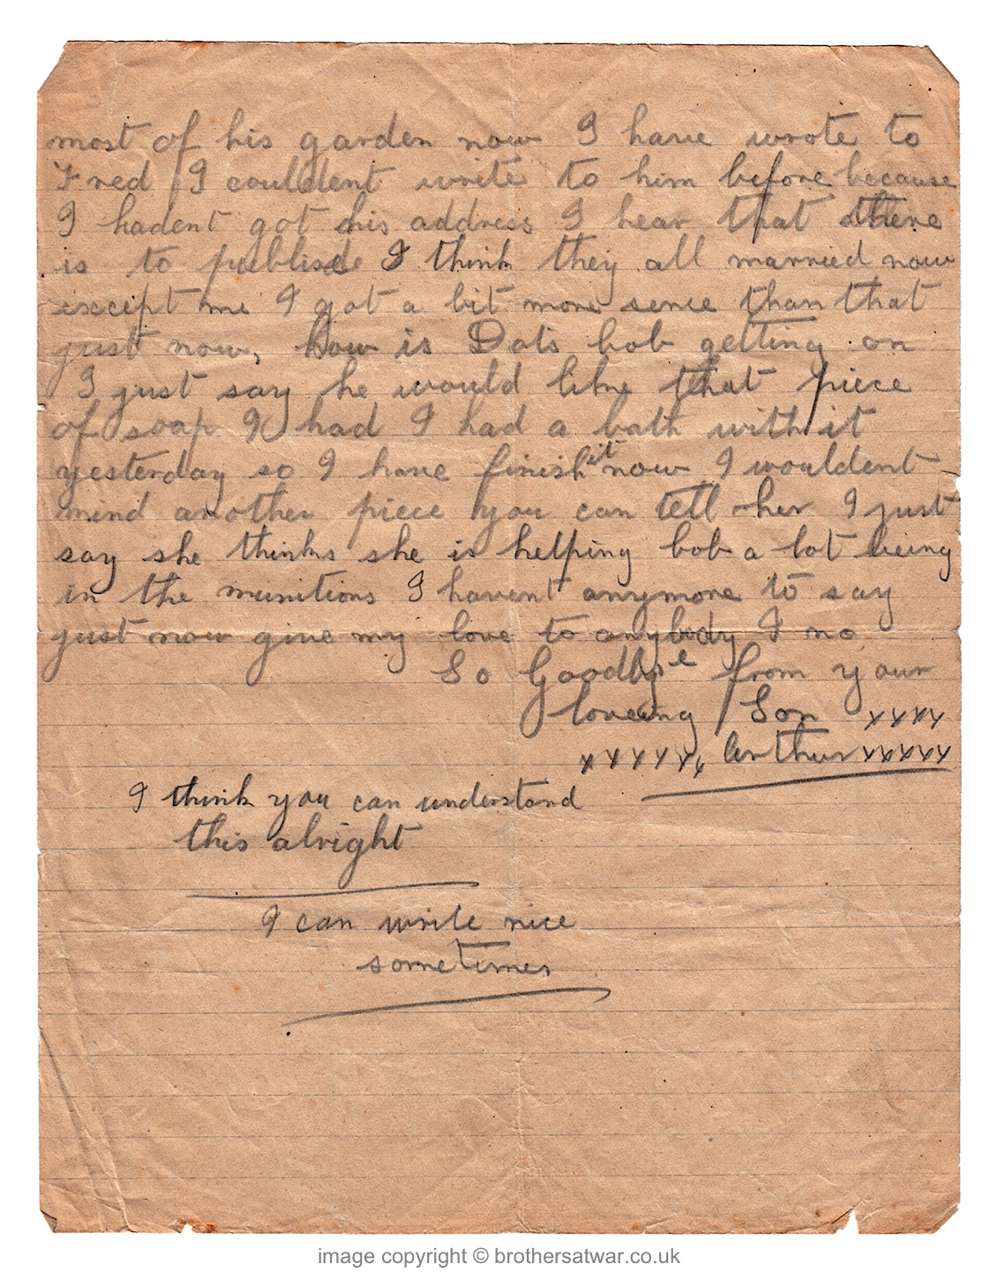 most of his garden now I have wrote to
Fred I couldent write to him before because
I hadent got his address I hear that there
is to publised I think they all married now
except me I got a bit more sence than that
just now, how is Dots bob getting on
I just say he would like that piece
of soap I had I had a bath with it
yesterday so I have finish it now I wouldent
mind another piece you can tell her I just
say she thinks she is helping bob a lot being
in the munitions I havent anymore to say
just now give my love to anybody I no
So Goodbye from your
loveing Son xxxx
xxxxxx Arthur xxxxx
I think you can understand
this alright
I can write nice
sometimes
image copyright © brothersatwar.co.uk